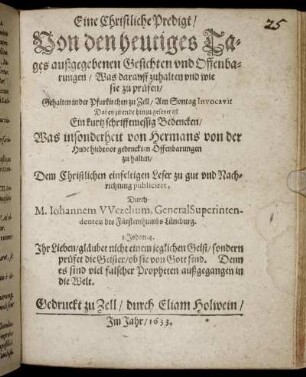 25
Eine Christliche Predigt/
Von den heutiges Ta-
ges außgegebenen Gesichten vnd Offenba-
rungen/ Was darauff zuhalten vnd wie
sie zu prüfen/
Gehalten in der Pfarkirchen zu Zell/ Am Sontag Invocavit
Ein kurtz schrifftmessig Bedencken/
Was insonderheit von Hermans von der
Hude hiebevor gedruckten Offenbarungen
zu halten/
Dem Christlichen einfeltigen Leser zu gut vnd Nach-
richtung publiciret,
Durch
M. Iohannem VVetzelium, GeneralSuperinten-
denten des Fürstenthumbs Lüneburg.
1. Johan. 4.
Ihr Lieben/ gläubet nicht einem jeglichen Geist/ sondern
prüfet die Geister/ ob sie von Gott sind. Denn
es sind viel falscher Propheten außgegangen in
die Welt.
Gedruckt zu Zell/ durch Eliam Holwein/
Im Jahr/ 1633.